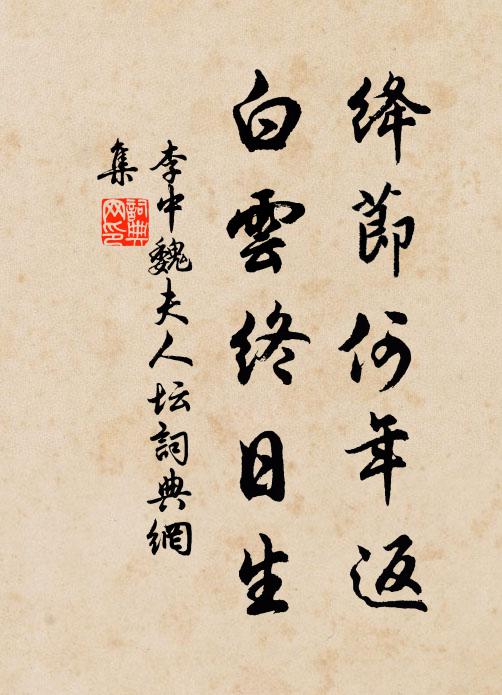 絳節何年返
白雲終日生
李中魏夫人坛詞典網
集
詞典網印